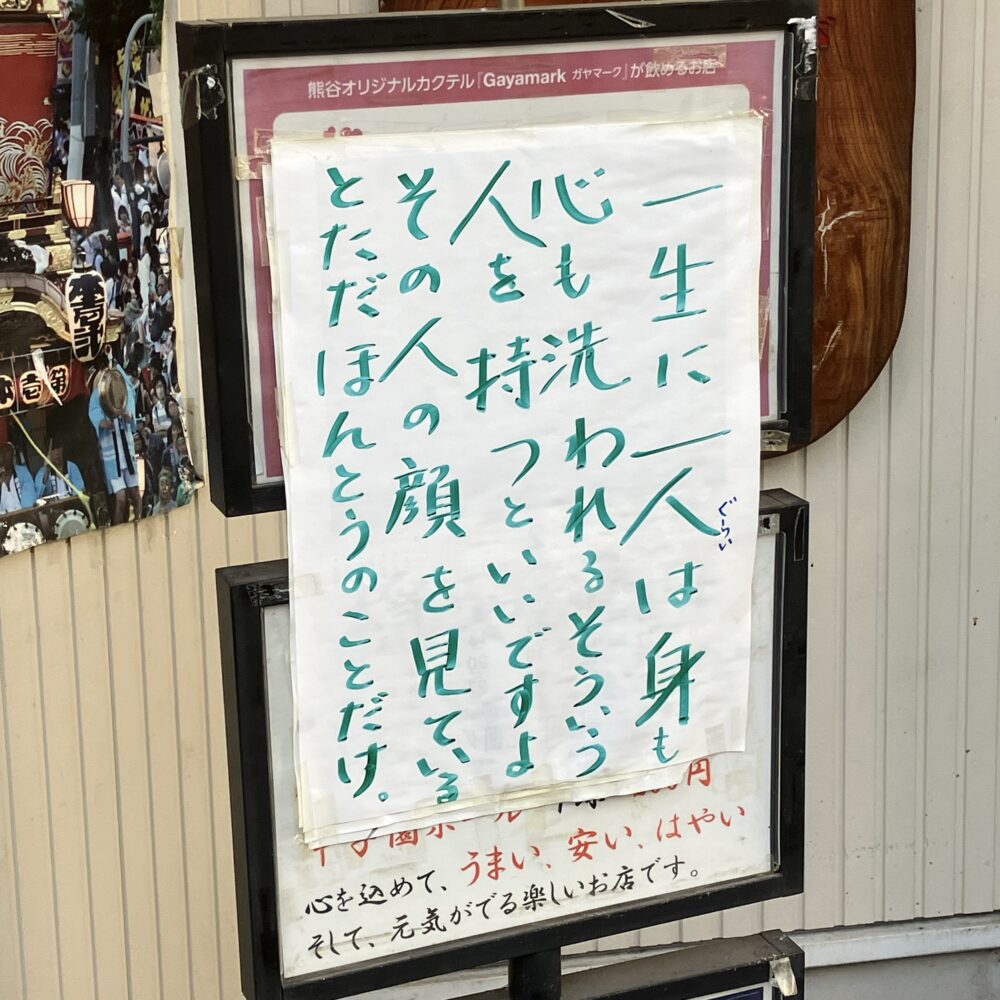 熊谷オリジナルカクテル『Gayamark ガヤマーク』が飲めるお店
一生に一人は身も
ぐらい
心も洗われるそういう
人を持つといいですよ
その人の顔を見ている
とただほんとうのことだけ。
円
うまい、安い、はやい
心を込めて、
そして、元気がでる楽しいお店です。